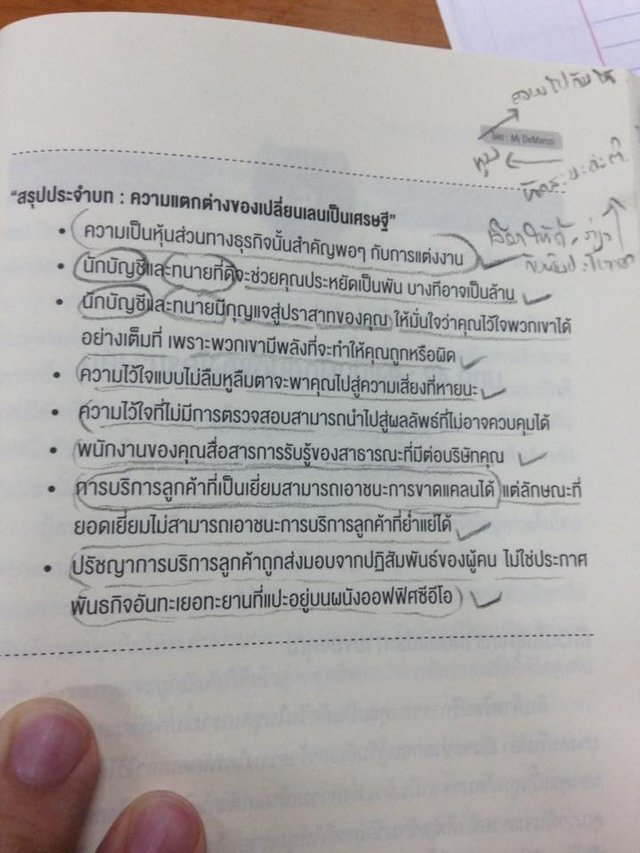 โดย : Mj DeMarco
"สรุปประจำบท : ความแตกต่างของเปลี่ยนเลนเป็นเศรษฐี"
• ความเป็นหุ้นส่วนทางธุรกิจนั้นสำคัญพอๆ กับการแต่งงาน
• นักบัญชีและทนายที่ดีจะช่วยคุณประหยัดเป็นพัน บางทีอาจเป็นล้าน
• นักบัญชีและทนายมีกุญแจสู่ปราสาทของคุณ ให้มั่นใจว่าคุณไว้ใจพวกเขาได้
อย่างเต็มที่ เพราะพวกเขามีพลังที่จะทำให้คุณถูกหรือผิด
• ความไว้ใจแบบไม่ลืมหูลืมตาจะพาคุณไปสู่ความเสี่ยงที่หายนะ
• ความไว้ใจที่ไม่มีการตรวจสอบสามารถนำไปสู่ผลลัพธ์ที่ไม่อาจควบคุมได้
• พนักงานของคุณสื่อสารการรับรู้ของสาธารณะที่มีต่อบริษัทคุณ
• การบริการลูกค้าที่เป็นเยี่ยมสามารถเอาชนะการขาดแคลนได้ แต่ลักษณะที่
ยอดเยี่ยมไม่สามารถเอาชนะการบริการลูกค้าที่ย่ำแย่ได้
• ปรัชญาการบริการลูกค้าถูกส่งมอบจากปฏิสัมพันธ์ของผู้คน ไม่ใช่ประกาศ
พันธกิจอันทะเยอทะยานที่แปะอยู่บนผนังออฟฟิศซีอีโอ